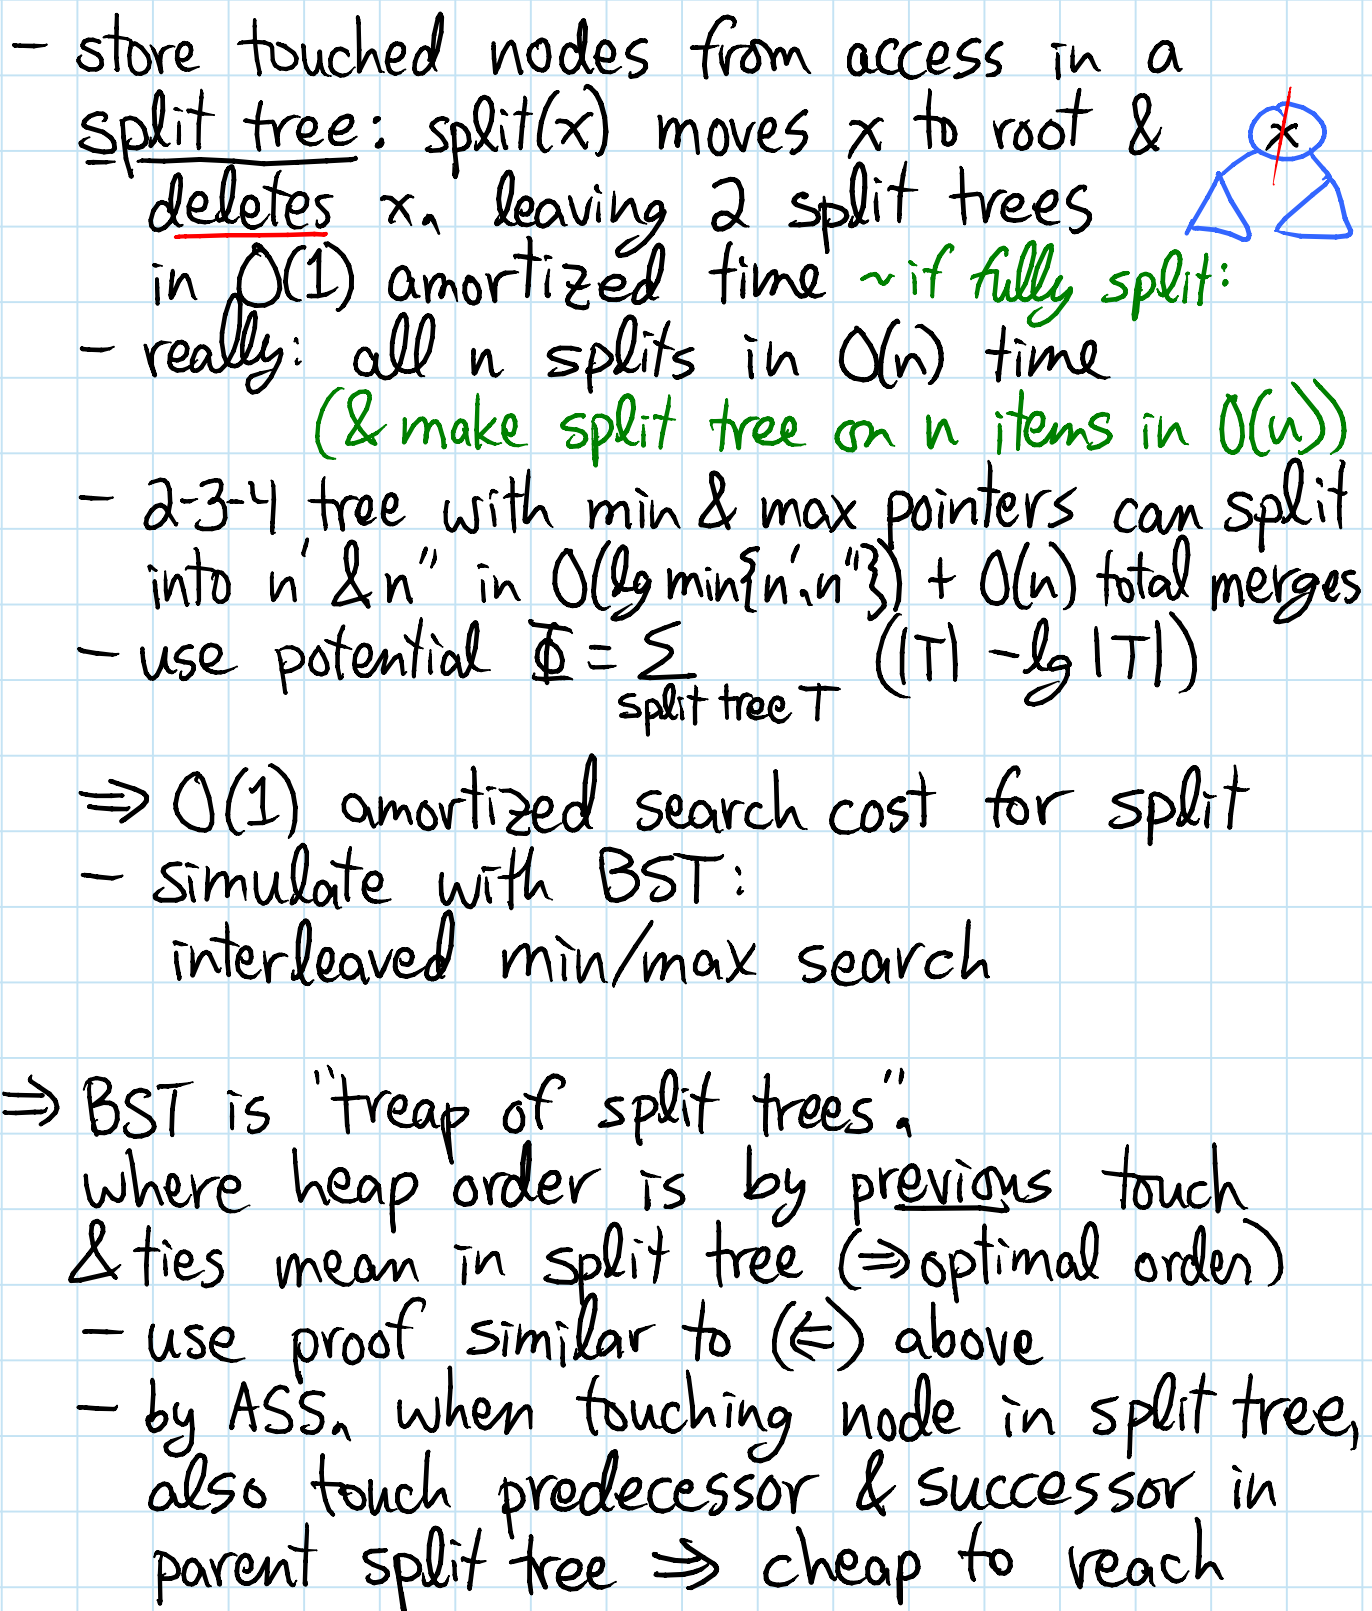 - store touched nodes from access in a
split tree: split(x) moves x to root &
x
deletes x, leaving 2 split trees
in O(1) amortized time ~if fully split:
- really: all n splits in O(n) time
(& make split tree on n items in O(n))
- 2-3-4 tree with min & max pointers can split
into n' & n'' in O(lg min{n', n''}) + O(n) total merges
- use potential Φ = Σ (|T| - lg |T|)
split tree T
⇒ O(1) amortized search cost for split
- simulate with BST:
interleaved min/max search
⇒ BST is "treap of split trees",
where heap order is by previous touch
& ties mean in split tree (⇒ optimal order)
- use proof similar to (⇐) above
- by ASS, when touching node in split tree,
also touch predecessor & successor in
parent split tree ⇒ cheap to reach